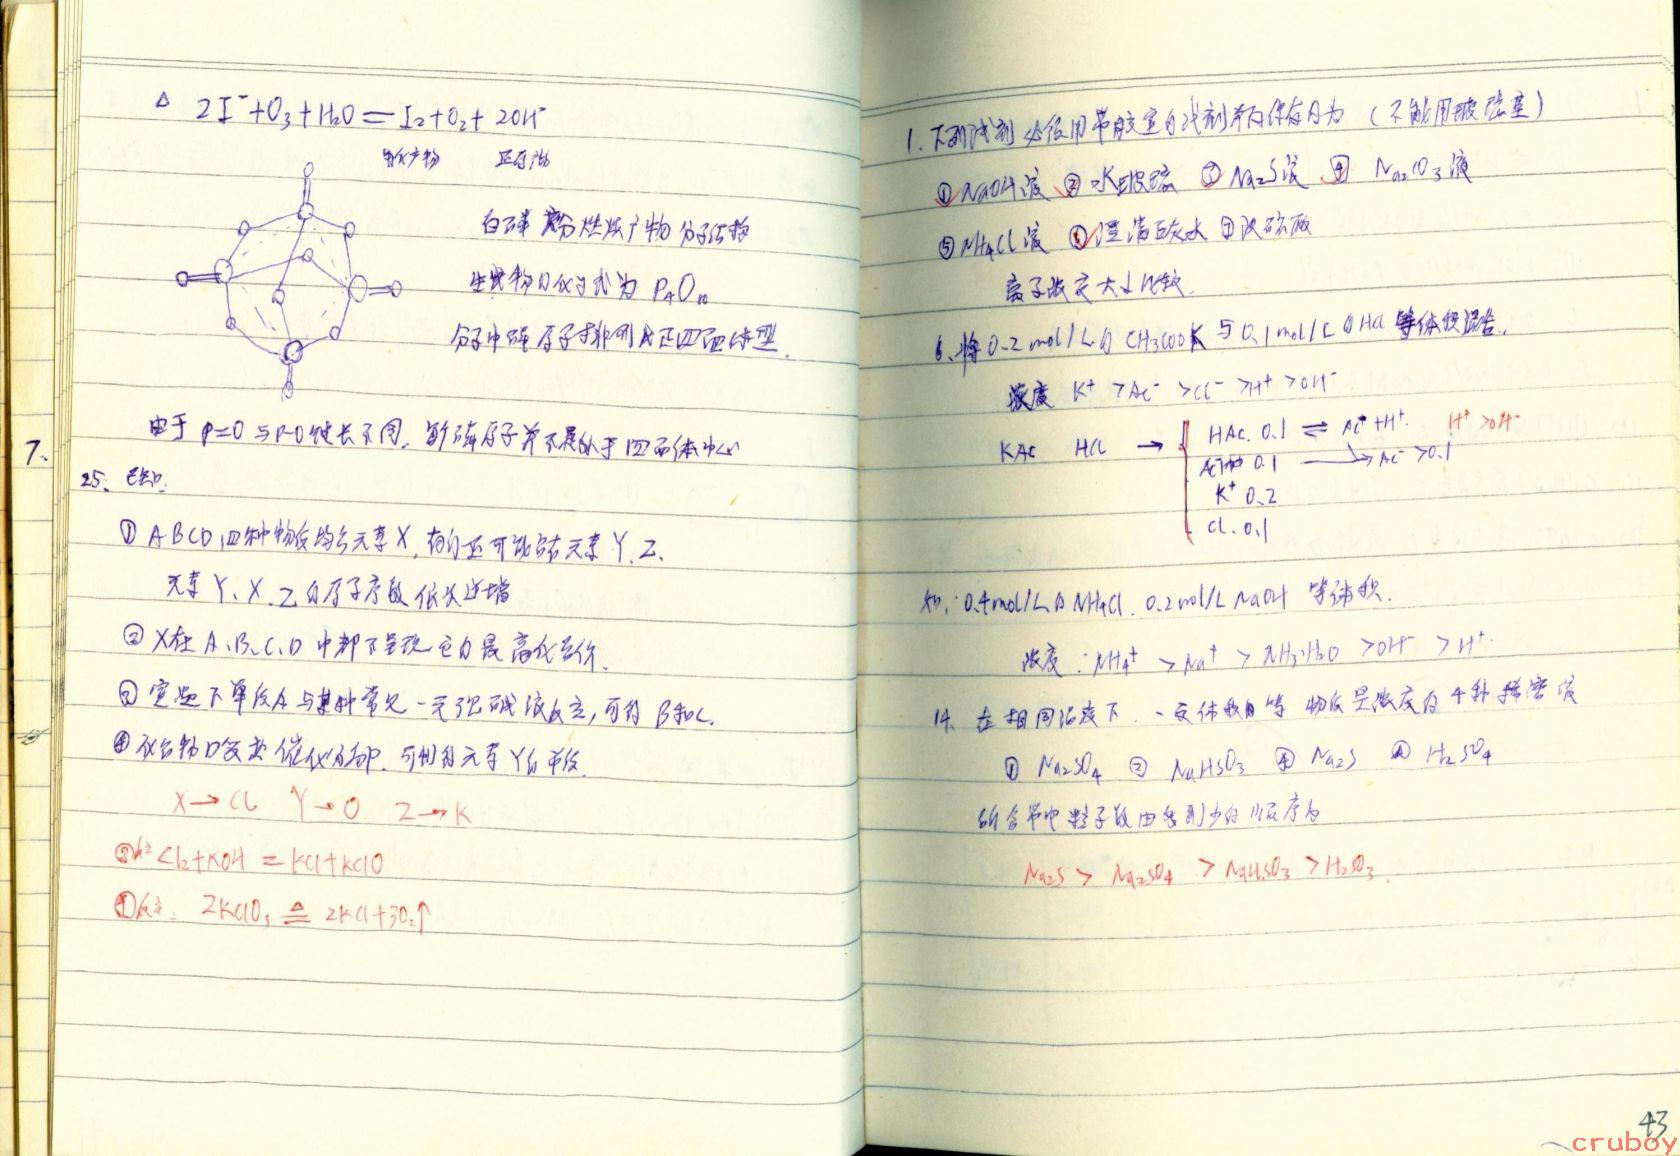 △ 2I⁻+O₃+H₂O=I₂+O₂+2OH⁻
氧化产物 还原产物
白磷 燃烧产物分子结构
生成物的化学式为 P₄O₁₀
分子中磷原子排列成正四面体型.
由于P=O与P-O键长不同, 所磷原子并不是处于四面体中心
7.
25. 已知.
① ABCD四种物质均含元素X, 有的还可能含有元素Y、Z.
元素Y、X、Z的原子序数依次递增
② X在A、B、C、D中都不呈现它的最高化合价.
③ 室温下单质A与某种常见一元强碱溶液反应, 可得B和C.
④ 化合物D受热催化分解, 可制得元素Y的单质.
X→Cl Y→O Z→K
③ Cl₂+KOH=KCl+KClO
④ 2KClO₃ ≜ 2KCl+3O₂↑
1. 下列试剂必须用带胶塞的试剂瓶保存的为 (不能用玻璃塞)
① NaOH液 ② 水玻璃 ③ Na₂S液 ④ Na₂CO₃液
⑤ NH₄Cl液 ⑥ 澄清石灰水 ⑦ 浓硫酸
离子浓度大小比较.
6. 将0.2mol/L的CH₃COOK与0.1mol/L的HCl等体积混合.
浓度 K⁺>Ac⁻>Cl⁻>H⁺>OH⁻
KAc HCl → HAc. 0.1 ⇌ Ac⁻+H⁺. H⁺>OH⁻
0.1 → Ac⁻>0.1
K⁺ 0.2
Cl. 0.1
如: 0.4mol/L的NH₄Cl. 0.2mol/L NaOH 等体积.
浓度: NH₄⁺>Na⁺>NH₃·H₂O>OH⁻>H⁺.
14. 在相同温度下, 一定体积的等物质量浓度的4种稀溶液
① Na₂SO₄ ② NaHSO₃ ③ Na₂S ④ H₂SO₄
所含带电粒子数由多到少的顺序为
Na₂S>Na₂SO₄>NaHSO₃>H₂SO₃.
43
cruboy